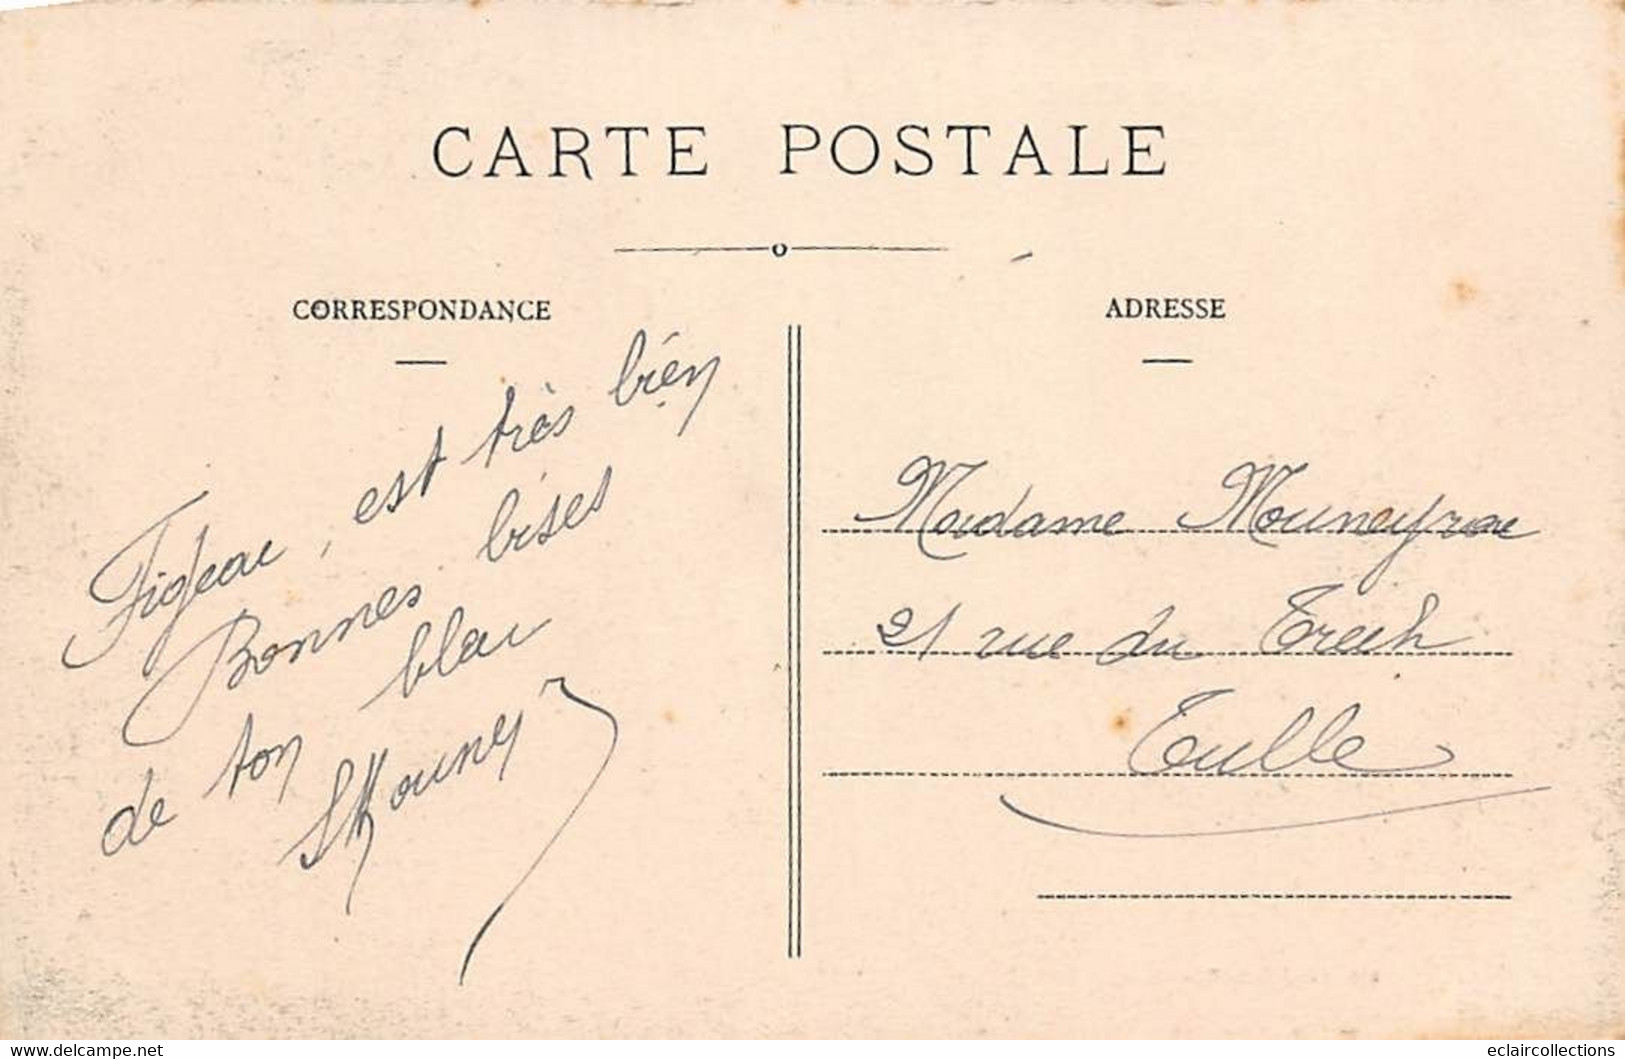 CARTE POSTALE
CORRESPONDANCE
Figeac, est très bien
Bonnes bises
de ton
ADRESSE
Madame Mouneyrac
21 rue du Trech
Tulle
www.delcampe.net
eclaircollections